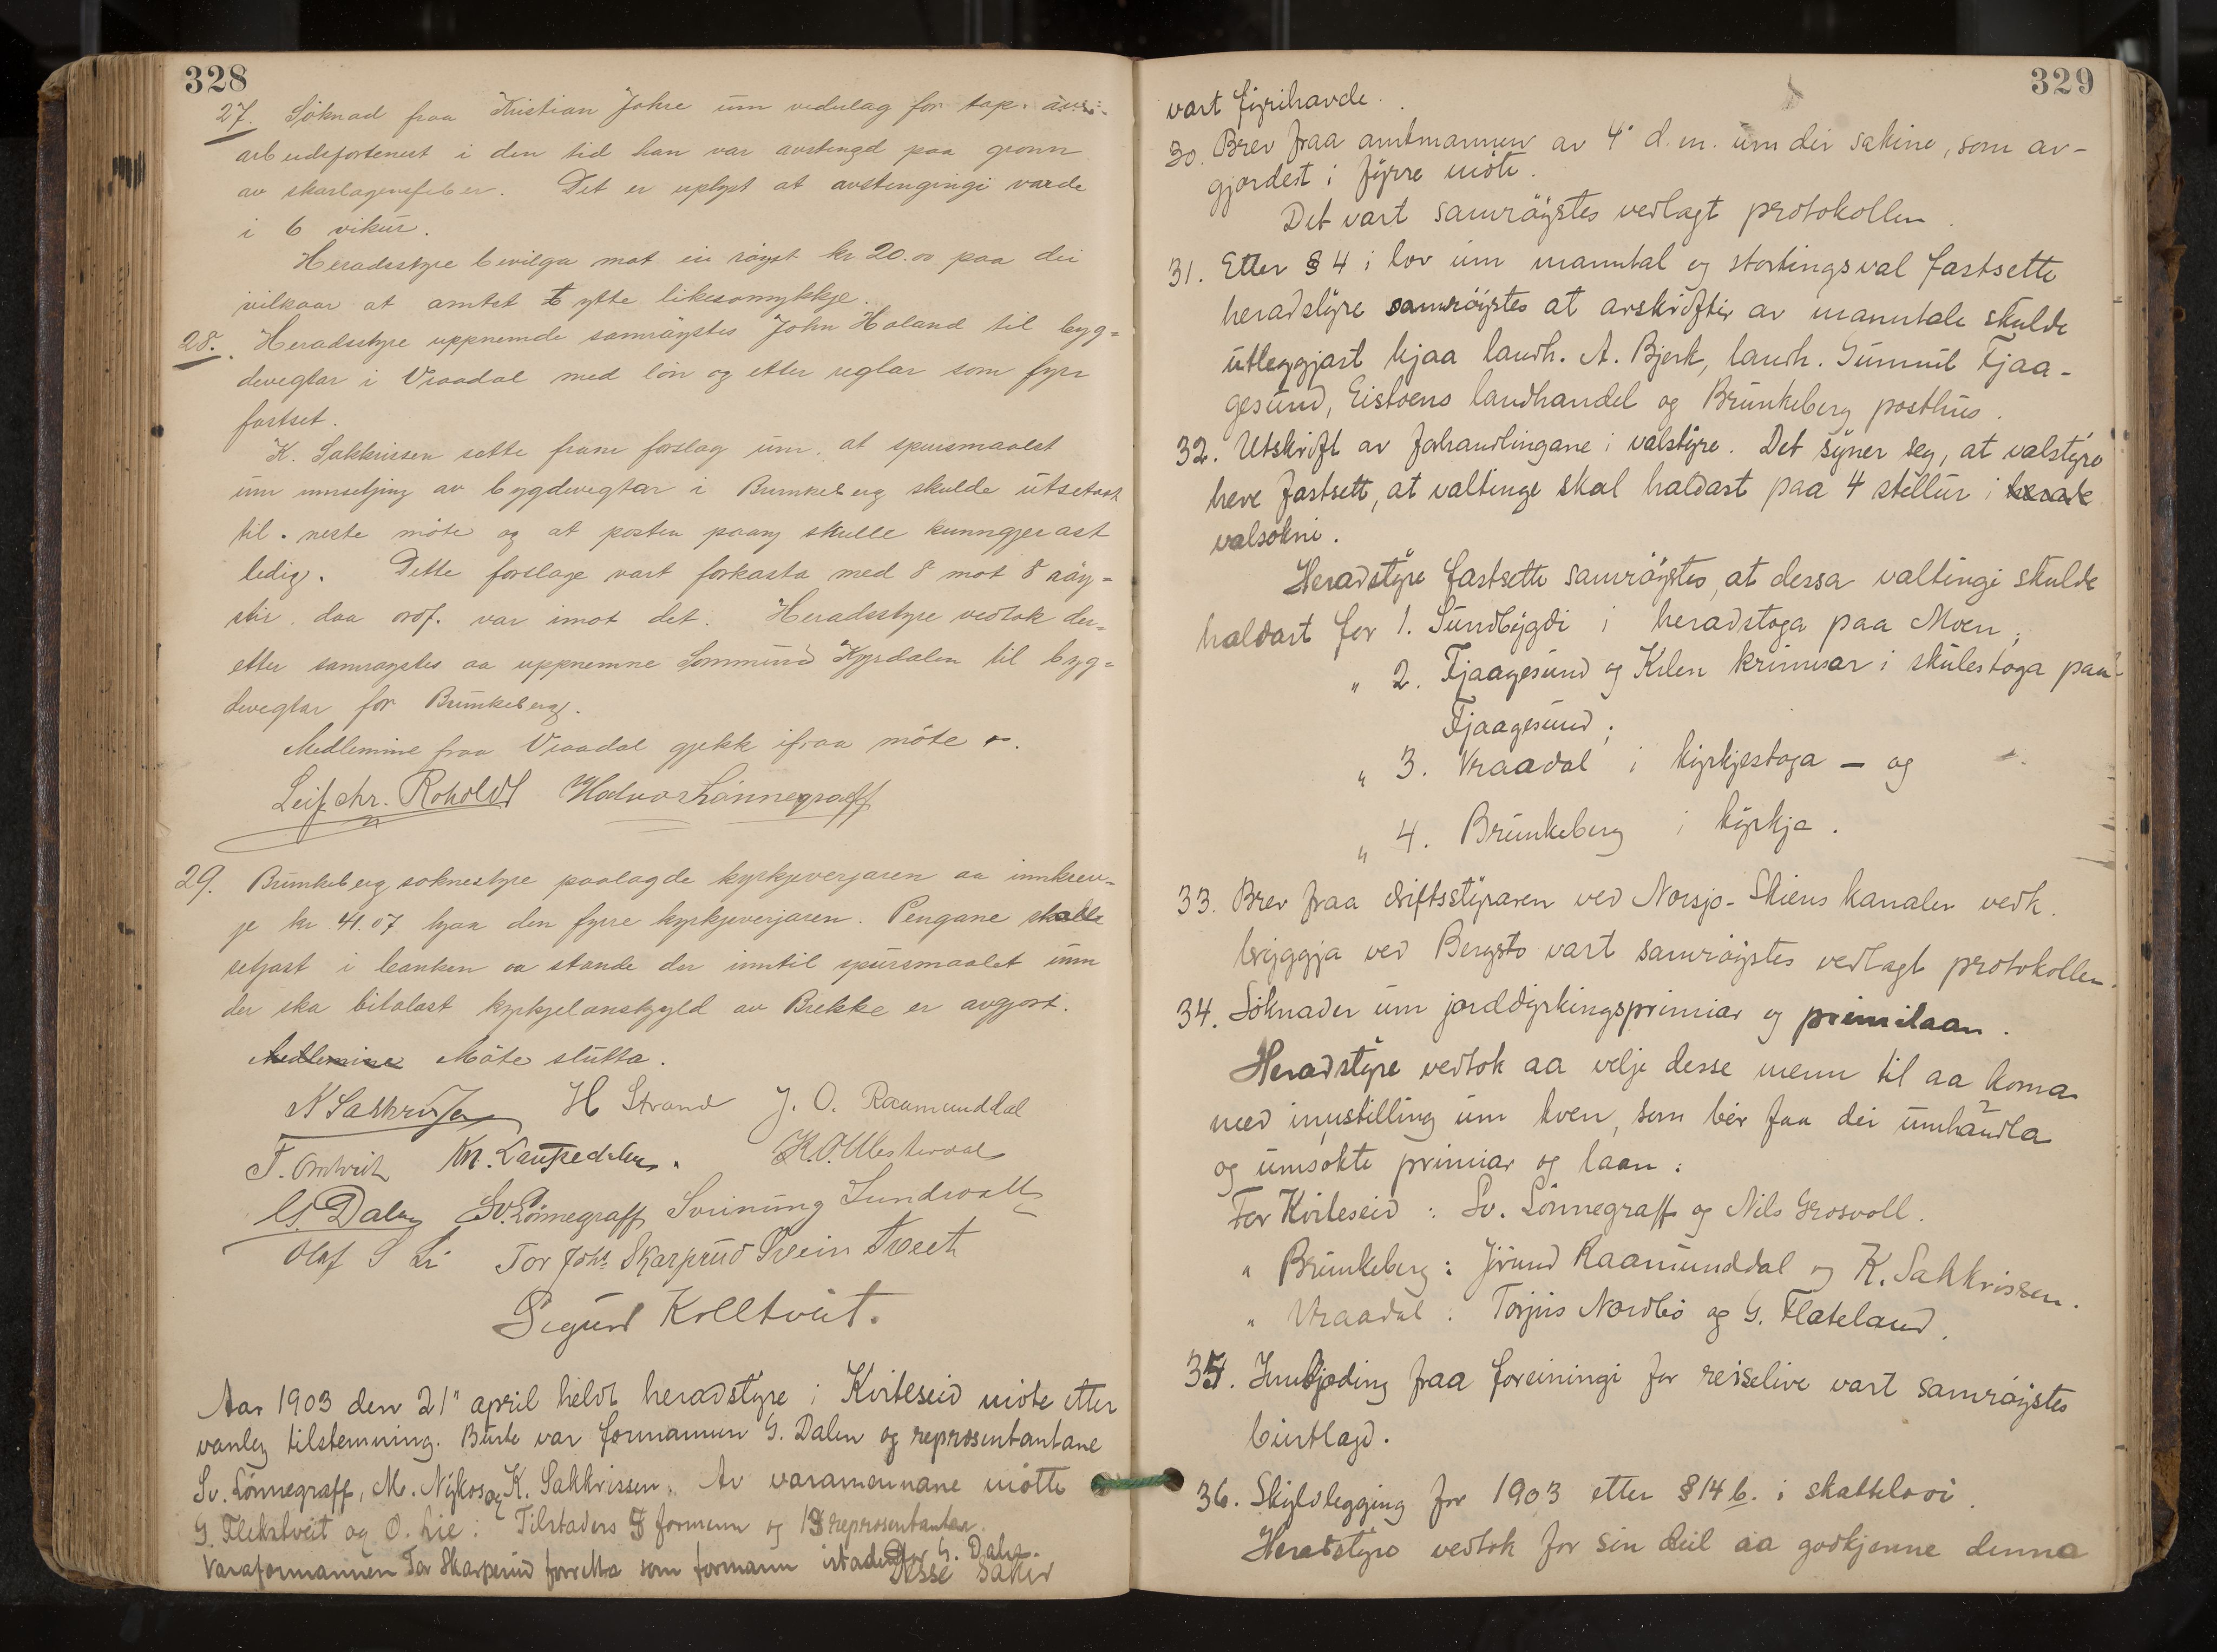 328
27. Söknad fraa Kristian Johre um vederlag for tap. av
arbeidsfortenest i den tid han var avstengd paa grunn
av skarlagensfeber. Det er uplyst at avstengingi varde
i 6 vikur.
Heradsstyre bevilga mot ei røyst kr 20.00 paa dei
vilkaar at amtet ytte likesomykkje.
28. Heradsstyre uppnemde samrøystes John Holand til byg-
devegtar i Vraadal med løn og etter reglar som fyrr
fastset.
K. Sakkrissen sette fram forslag um, at spursmaalet
um umsetjing av bygdevegtar i Brunkeberg skulde utsetast
til neste möte og at posten paany skulle kunngjerast
ledig. Dette forslage vart forkasta med 8 mot 8 röy-
stir, daa ordf. var imot det. Heradsstyre vedtok der-
etter samrøystes aa uppnemne Sommund Kyrdalen til byg-
devegtar for Brunkeberg.
Medlemine fraa Vraadal gjekk ifraa möte
Leif chr. Roholdt Halvor Lönnegraff
29. Brunkeberg soknestyre paalagde kyrkjeverjaren aa innkrev-
je kr 41.07 hjaa den fyrre kyrkjeverjaren. Pengane skulle
setjast i banken aa stande der inntil spursmaalet um
der ska bitalast kyrkjelanskyld av Brekke er avgjort.
Medlemine Möte slutta.
K Sakkrissen H Strand J. O. Raamunddal
T. Omtveit Kn. Lauperdalen. K. O. Vesterdal
G. Dalen Sv. Lönnegraff Sveinung Sundvall
Olaf S Li Tor Johs Skarprud Svein Tveit
Sigurd Kolltveit.
Aar 1903 den 21" april heldt heradstyre i Kviteseid möte etter
vanleg tilstemning. Burte var formannen G. Dalen og representantane
Sv. Lönnegraff, M. Nykos og K. Sakkrissen. Av varamennane mötte
G. Flekstveit og O. Lie: Tilstaders formenn og representantar.
Varaformannen Tor Skarprud forretta som formann istadenfor G. Dalen.
Desse saker
329
vart fyrihavde.
30. Brev fraa amtmannen av 4' d. m. um dei sakine, som av-
gjordest i fyrre möte.
Det vart samröystes vedlagt protokollen.
31. Etter § 4 i lov um manntal og stortingsval fastsette
heradstyre samröystes at avskrifter av manntale skulde
utleggjast hjaa landh. A. Bjerk, landh. Gunnul Fjaa-
gesund, Eistoens landhandel og Brunkeberg posthus.
32. Utskrift av forhandlingane i valstyre. Det syner seg, at valstyre
heve fastsett, at valtinge skal haldast paa 4 stellur i herade
valsokni.
Heradstyre fastsette samröystes, at dessa valtingi skulde
haldast for 1. Sundbygdi i heradstoga paa Moen;
" 2. Fjaagesund og Kilen krinsar i skulestoga paa
Fjaagesund;
" 3. Vraadal i kyrkjestoga — og
" 4. Brunkeberg i kyrkja.
33. Brev fraa driftsstyraren ved Norsjö-Skiens kanalen vedk.
bryggja ved Bergstö vart samröystes vedlagt protokollen.
34. Söknader um jorddyrkingspremiar og premilaan.
Heradstyre vedtok aa velje desse menn til aa koma
med innstilling um kven, som bör faa dei umhandla
og umsökte premiar og laan:
For Kviteseid: Sv. Lönnegraff og Nils Grosvoll.
" Brunkeberg: Jörund Raamunddal og K. Sakkrissen.
" Vraadal: Torjus Nordbö og G. Flateland.
35. Innbjoding fraa foreiningi for reiselive vart samröystes
burtlagd.
36. Skyldlegging for 1903 etter § 14 b. i skattelovi.
Heradstyre vedtok for sin deil aa godkjenne denna